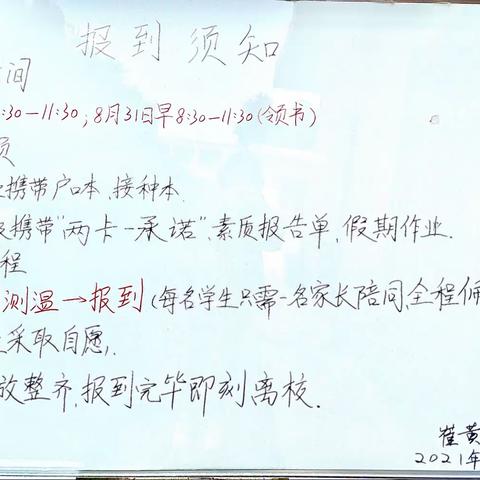 报到须知
间
:30—11:30；8月31日早8:30—11:30(领书)
员
携带户口本、接种本.
携带"两卡一承诺"、素质报告单、假期作业.
程
测温→报到(每名学生只需一名家长陪同,全程佩
采取自愿,.
放整齐,报到完毕即刻离校.
崔黄
2021年